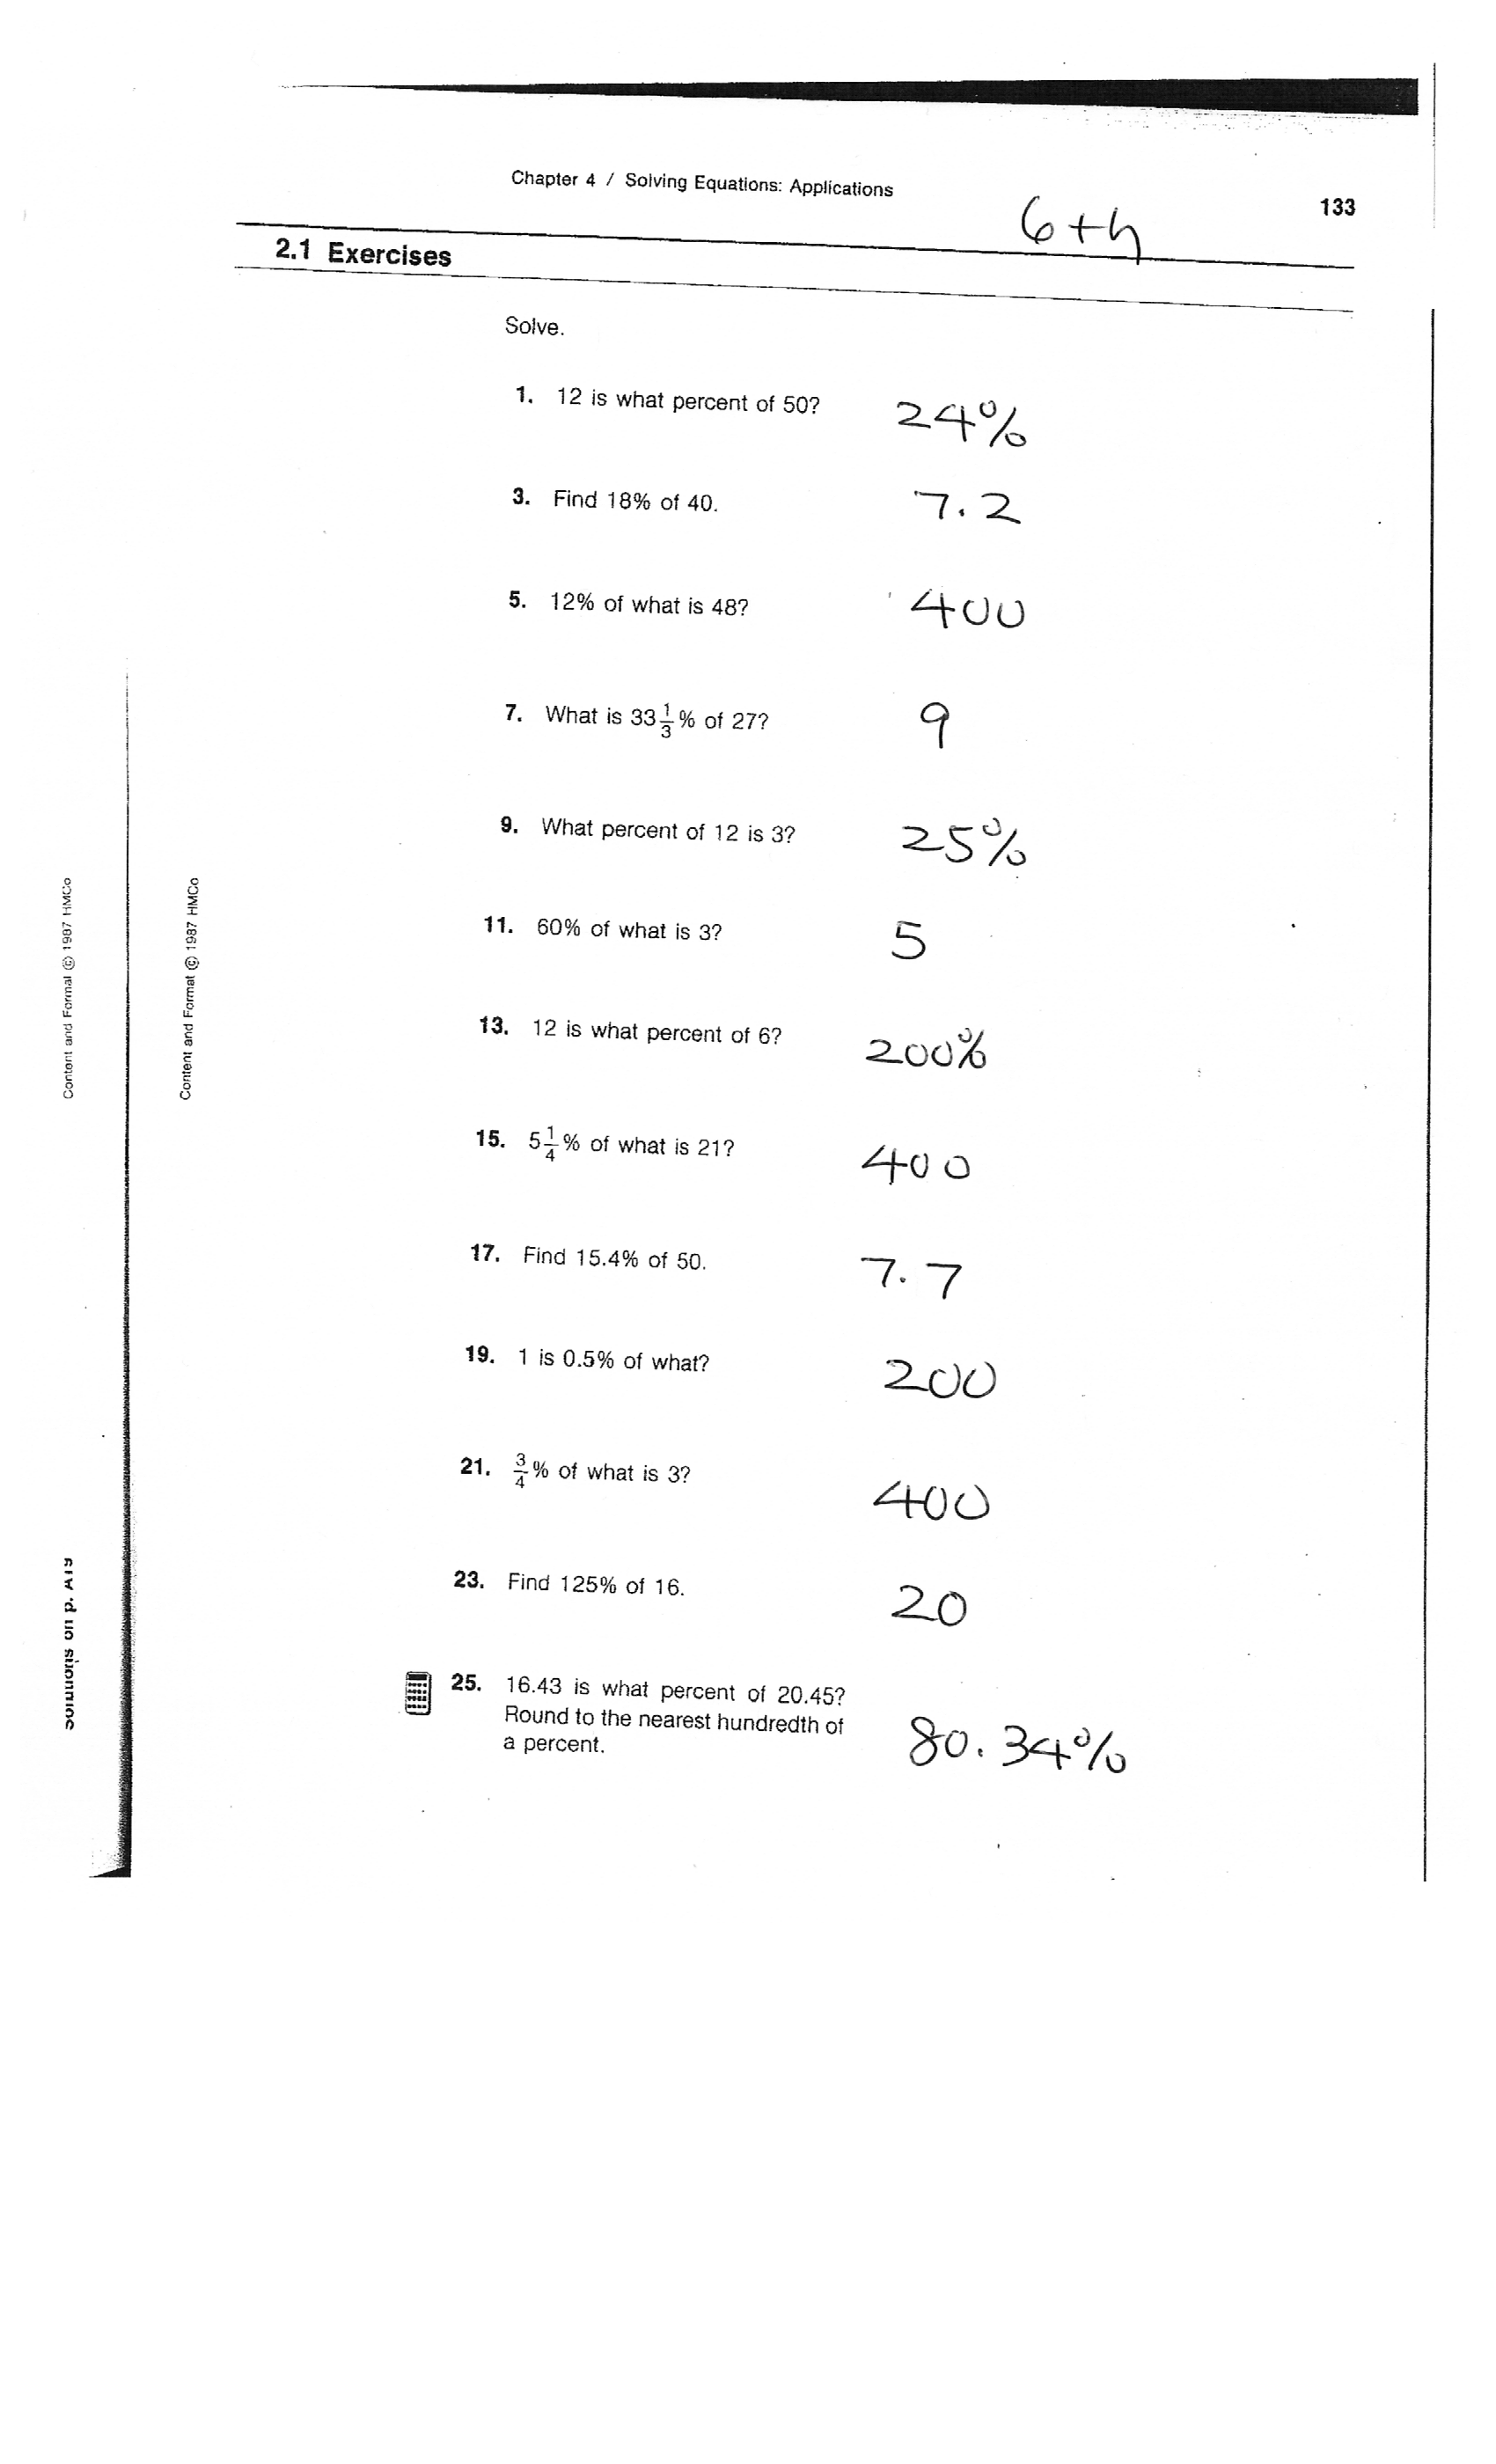 Chapter 4 / Solving Equations: Applications
133
6th
2.1 Exercises
Solve.
1. 12 is what percent of 50? 24%
3. Find 18% of 40. 7.2
5. 12% of what is 48? 400
7. What is 33 1/3 % of 27? 9
9. What percent of 12 is 3? 25%
11. 60% of what is 3? 5
13. 12 is what percent of 6? 200%
15. 5 1/4 % of what is 21? 400
17. Find 15.4% of 50. 7.7
19. 1 is 0.5% of what? 200
21. 3/4 % of what is 3? 400
23. Find 125% of 16. 20
25. 16.43 is what percent of 20.45?
Round to the nearest hundredth of
a percent. 80.34%
Content and Format © 1987 HMCo
Content and Format © 1987 HMCo
Solutions on p. A19